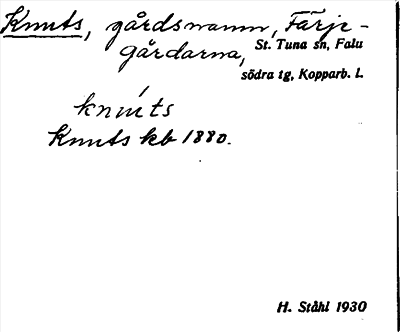 Knuts, gårdsnamn, Färje-
gårdarna, St. Tuna sn, Falu
södra tg, Kopparb. l.
knúts
Knuts kb 1880.
H. Ståhl 1930